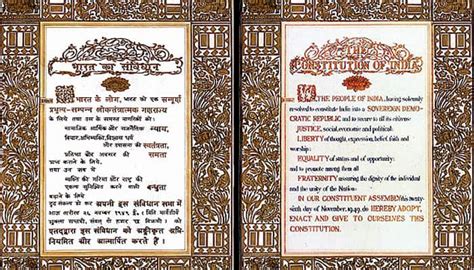 भारत का संविधान
भारत के लोग, भारत को एक सम्पूर्ण
प्रभुत्व-सम्पन्न लोकतन्त्रात्मक गणराज्य
के लिये तथा उस के समस्त नागरिकों को:
सामाजिक आर्थिक और राजनैतिक न्याय,
विचार, अभिव्यक्ति, विश्वास, धर्म
और उपासना की स्वतंत्रता,
प्रतिष्ठा और अवसर की समता
प्राप्त कराने के लिये,
तथा उन सब में
व्यक्ति की गरिमा और राष्ट्र की
एकता सुनिश्चित करने वाली बन्धुता
बढ़ाने के लिये
दृढ़ संकल्प हो कर अपनी इस संविधान सभा में
आज तारीख २६ नवम्बर १९४९ ई. (मिति मार्गशीर्ष
शुक्ला सप्तमी, संवत् दो हजार छह विक्रमी) को
एतद्द्वारा इस संविधान को अङ्गीकृत अधि-
नियमित और आत्मार्पित करते हैं.
THE
CONSTITUTION OF INDIA
WE, THE PEOPLE OF INDIA, having solemnly
resolved to constitute India into a SOVEREIGN DEMO-
CRATIC REPUBLIC and to secure to all its citizens:
JUSTICE, social, economic and political;
LIBERTY of thought, expression, belief, faith and
worship;
EQUALITY of status and of opportunity;
and to promote among them all
FRATERNITY assuring the dignity of the individual
and the unity of the Nation;
IN OUR CONSTITUENT ASSEMBLY this twenty-
sixth day of November, 1949, do HEREBY ADOPT,
ENACT AND GIVE TO OURSELVES THIS
CONSTITUTION.